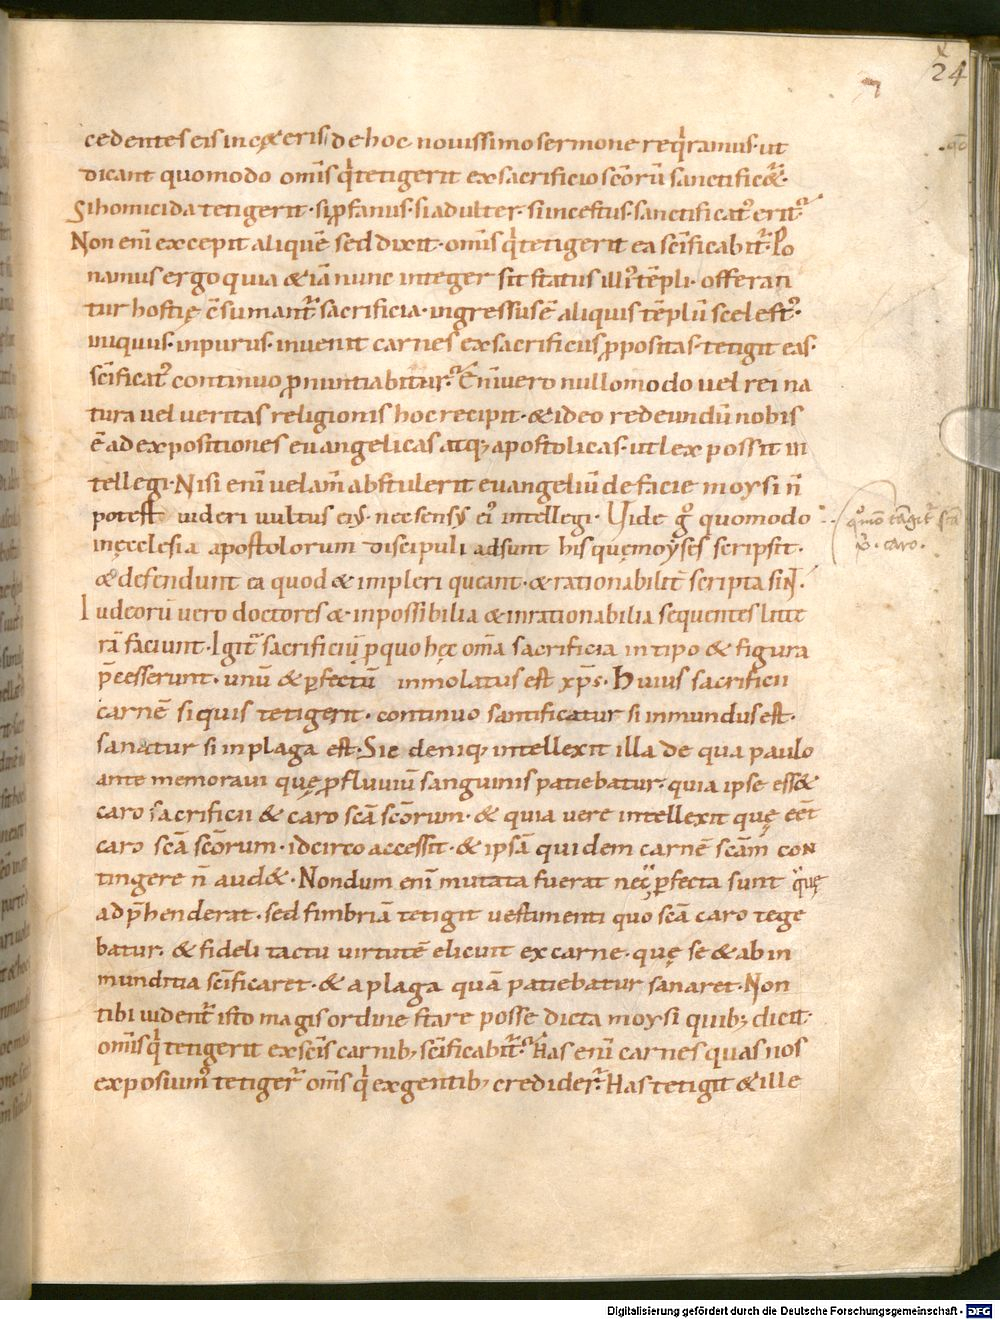 24
cedentes eis in cęteris de hoc nouissimo sermone reqͥramus· ut
dicant quomodo om̅s qͥ tetigerit ex sacrificio sc̅oru̅ sanctific&ᷣ·
Si homicida tetigerit· si ꝓfanus· si adulter· si incestus· sanctificat᾿ erit·
Non eni̅ excepit alique̅ sed dixit· om̅s qͥ tetigerit ea sc̅ificabit᷑· Po
namus ergo quia & ia̅ nunc integer sit status illi᾿ te̅pli· offeran
tur hostię c̅sumant᷑ sacrificia· ingressus e̅ aliquis te̅plu̅ scelest᾿·
iniquus· inpurus· inuenit carnes ex sacrificiis ꝓpositas· tetigit eas·
sc̅ificat᾿ continuo ꝓnuntiabitur· Eni̅uero nullo modo uel rei na
tura uel ueritas religionis hoc recipit· & ideo redeundu̅ nobis
e̅ ad expositiones euangelicas atq; apostolicas· ut lex possit in
tellegi· Nisi eni̅ uelam̅ abstulerit euangeliu̅ de facie moysi n̅
potest uideri uultus eiꝰ· nec sensꝰ ei᾿ intellegi· Uide gͦ quomodo
in ęcclesia apostolorum discipuli adsunt his quę moyses scripsit·
& defendunt ea quod & impleri queant· & rationabilit̅ scripta sint·
Iudeoru̅ uero doctores & inpossibilia & inrationabilia sequentes litte
ra̅ faciunt· Igit᷑ sacrificiu̅ ꝓ quo hęc om̅a sacrificia in tipo & figura
p̅cesserunt· unu̅ & ꝑfectu̅ inmolatus est xp̅s· Huius sacrificii
carne̅ si quis tetigerit· continuo santificatur si inmundus est·
sanatur si in plaga est· Sic deniq; intellexit illa de qua paulo
ante memoraui quę ꝓfluuiu̅ sanguinis patiebatur· quia ipse ess&
caro sacrificii & caro sc̅a sc̅orum· & quia uere intellexit quę e̅et
caro sc̅a sc̅orum· idcirco accessit· & ipsa̅ quidem carne̅ sc̅am con
tingere n̅ aud&· Nondum eni̅ mutata fuerat nec ꝑfecta sunt quę
adp̅henderat· sed fimbria̅ tetigit uestimenti quo sc̅a caro tege
batur· & fideli tactu uirtute̅ elicuit ex carne· quę se & ab in
munditia sc̅ificaret· & a plaga qua̅ patiebatur sanaret· Non
tibi uident᷑ isto magis ordine stare posse dicta moysi quib; dicit·
om̅s qͥ tetigerit ex sc̅is carnib; sc̅ificabit᷑· Has eni̅ carnes quas nos
exposuim᾿ tetiger᷑ om̅s qͥ ex gentib; credider᷑· Has tetigit & ille
Digitalisierung gefördert durch die Deutsche Forschungsgemeinschaft - DFG